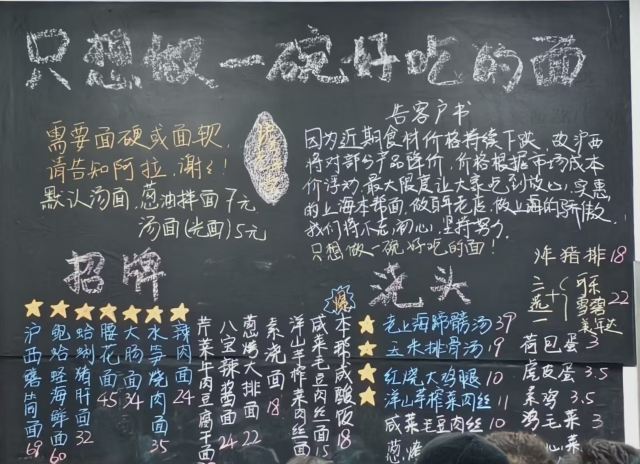 只想做一碗好吃的面
需要面硬或面软，
请告知阿拉，谢谢！
默认汤面，葱油拌面7元
汤面(光面)5元
告客户书
因为近期食材价格持续下跌，故沪西
将对部分产品降价，价格根据市场成本
价浮动，最大限度让大家吃到放心，实惠
的上海本帮面，做百年老店，做上海的骄傲，
我们将不忘初心，坚持努力，
只想做一碗好吃的面！
招牌
沪西鳝筒面68
鲍蛤蛏海鲜面60
蛤蜊猪肝面32
腰花面45
大肠面34
水笋烧肉面35
辣肉面24
芹菜牛肉豆腐干面
八宝辣酱面24
葱烤大排面22
素浇面18
洋山芋榨菜肉丝面
咸菜毛豆肉丝面15
爆
本帮咸酸饭18
浇头
老上海蹄髈汤39
玉米排骨汤19
红烧大鸡腿10
洋山芋榨菜肉丝11
咸菜毛豆肉丝10
炸猪排18
三选一+
可乐
雪碧
美年达
22
荷包蛋3
虎皮蛋3.5
素鸡3.5
鸡毛菜3